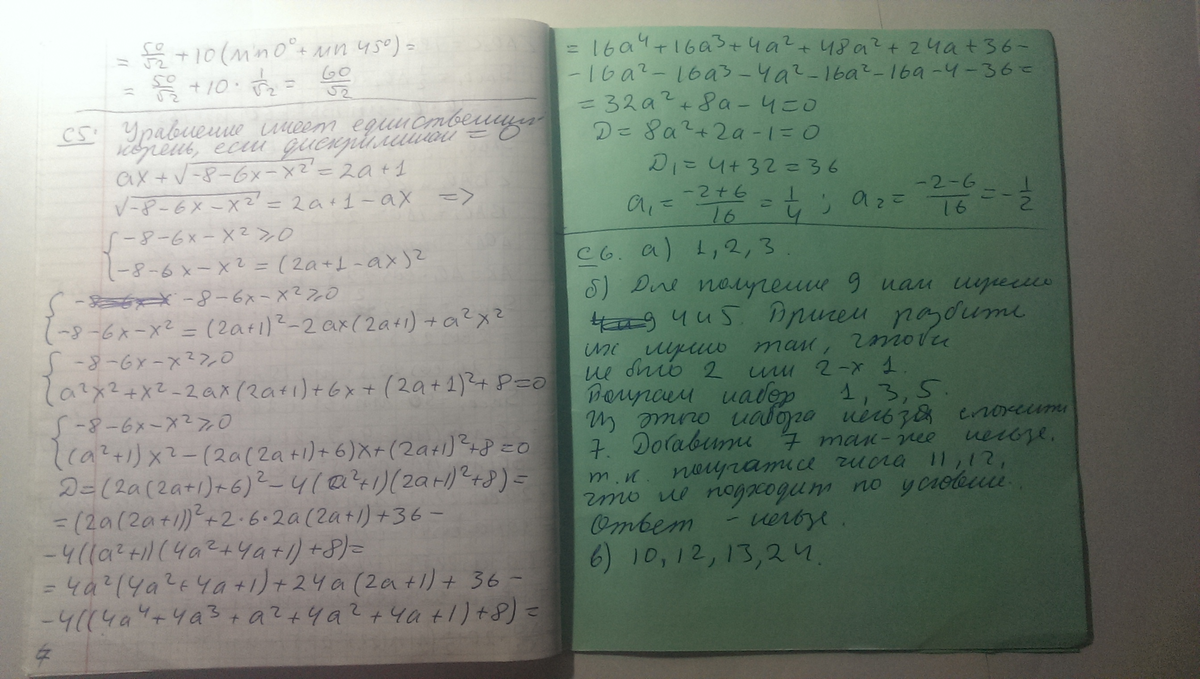 = 50/√2 + 10(sin 0° + sin 45°) =
= 50/√2 + 10 · 1/√2 = 60/√2
C5. Уравнение имеет единственный
корень, если дискриминант = 0
ax + √(-8-6x-x²) = 2a+1
√(-8-6x-x²) = 2a+1-ax =>
{ -8-6x-x² ≥ 0
-8-6x-x² = (2a+1-ax)²
{ -8-6x-x² ≥ 0
-8-6x-x² = (2a+1)² - 2ax(2a+1) + a²x²
{ -8-6x-x² ≥ 0
a²x² + x² - 2ax(2a+1) + 6x + (2a+1)² + 8 = 0
{ -8-6x-x² ≥ 0
(a²+1)x² - (2a(2a+1)+6)x + (2a+1)² + 8 = 0
D = (2a(2a+1)+6)² - 4(a²+1)(2a+1)² + 8) =
= (2a(2a+1))² + 2·6·2a(2a+1) + 36 -
-4((a²+1)(4a²+4a+1)+8) =
= 4a²(4a²+4a+1) + 24a(2a+1) + 36 -
-4((4a⁴+4a³+a²+4a²+4a+1)+8) =
7
= 16a⁴+16a³+4a²+48a²+24a+36-
-16a²-16a³-4a²-16a²-16a-4-36 =
= 32a²+8a-4=0
D = 8a²+2a-1=0
D₁ = 4+32 = 36
a₁ = (-2+6)/16 = 1/4 ; a₂ = (-2-6)/16 = -1/2
C6. а) 1, 2, 3.
б) Для получение 9 нам нужно
4 и 5. Причем разбить
их нужно так, чтобы
не было 2 или 2-х 1.
Получаем набор 1, 3, 5.
Из этого набора нельзя сложить
7. Добавить 7 так-же нельзе.
т.к. получатся числа 11, 12,
что не подходит по условие.
Ответ - нельзе.
в) 10, 12, 13, 24.